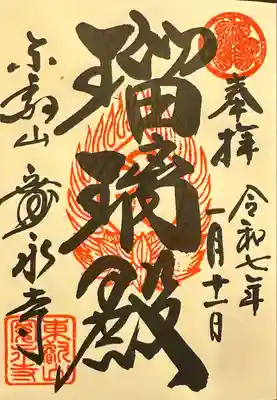 奉拝
令和七年
一月十二日
瑠璃殿
東叡山
寛永寺
東叡山
寛永寺